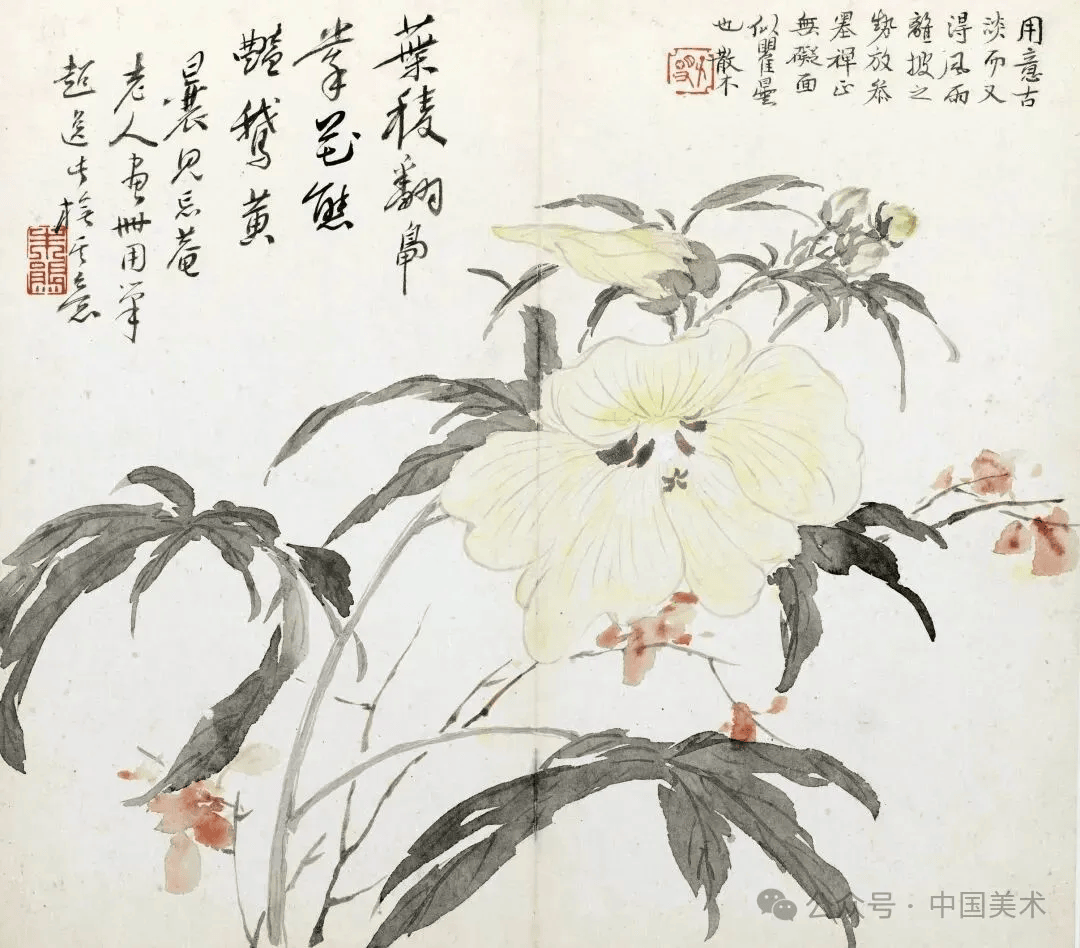 用意古
淡而又
得風雨
離披之
勢放參
墨禪正
無礙面
似瞿曇
也 散木
葉稜翻
掌花態
豔鵝黃
曩見忘菴
老人畫冊用筆
超逸此擬其意
公众号 · 中国美术